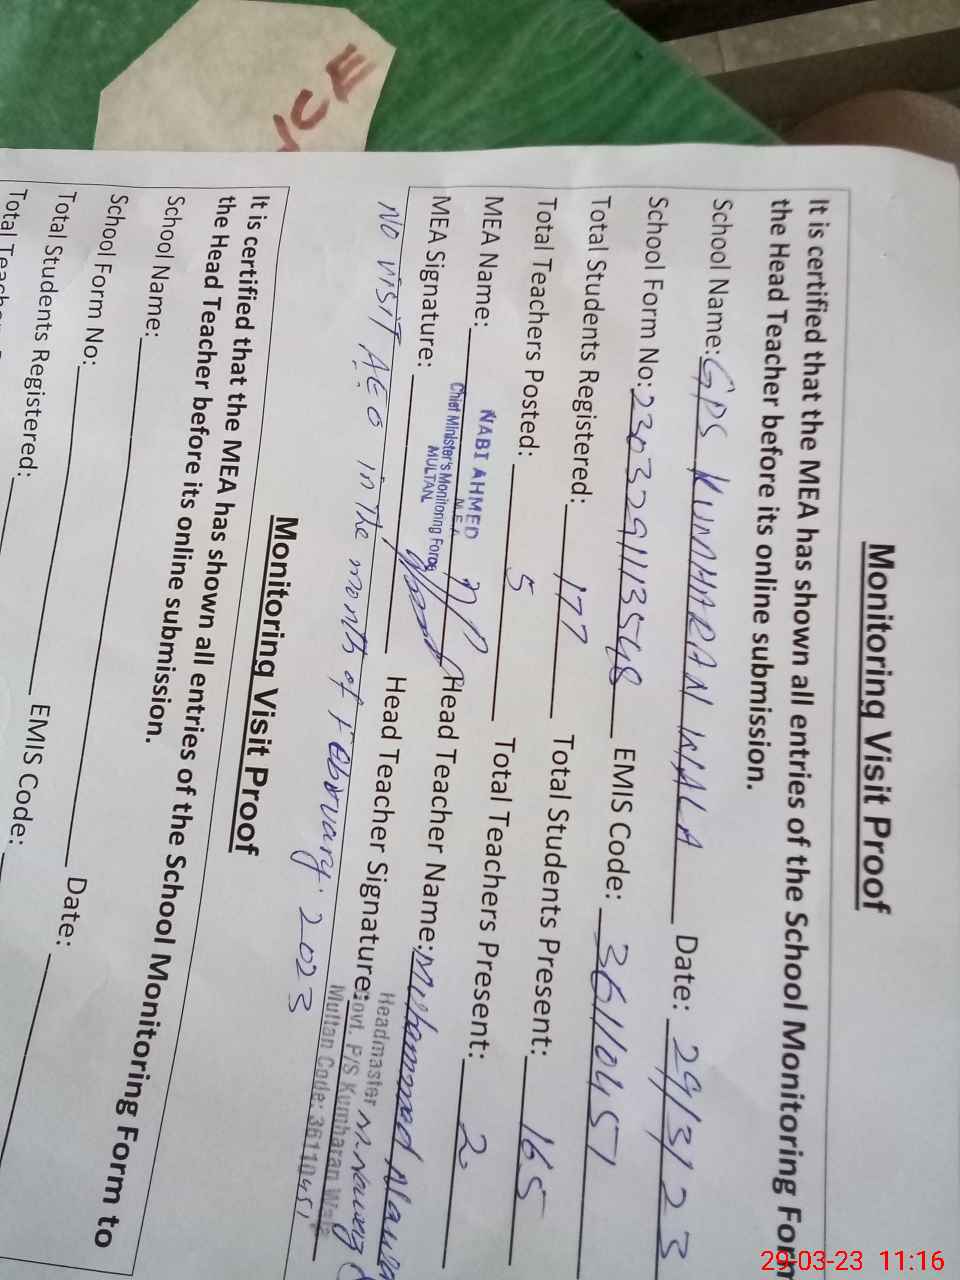 Monitoring Visit Proof
It is certified that the MEA has shown all entries of the School Monitoring Form
the Head Teacher before its online submission.
School Name: GPS KUMHARAN WALA Date: 29/3/23
School Form No: EMIS Code: 36110451
Total Students Registered: 177 Total Students Present: 165
Total Teachers Posted: 5 Total Teachers Present: 2
MEA Name: NABI AHMED Head Teacher Name: Muhammad
M.E.A
Chief Minister's Monitoring Force
MULTAN
MEA Signature: Head Teacher Signature:
Headmaster
Govt. P/S Kumharan Wala
Multan Code: 36110451
No visit AEO in the month of February. 2023
Monitoring Visit Proof
It is certified that the MEA has shown all entries of the School Monitoring Form to
the Head Teacher before its online submission.
School Name: Date:
School Form No: EMIS Code:
Total Students Registered:
Total
29-03-23 11:16